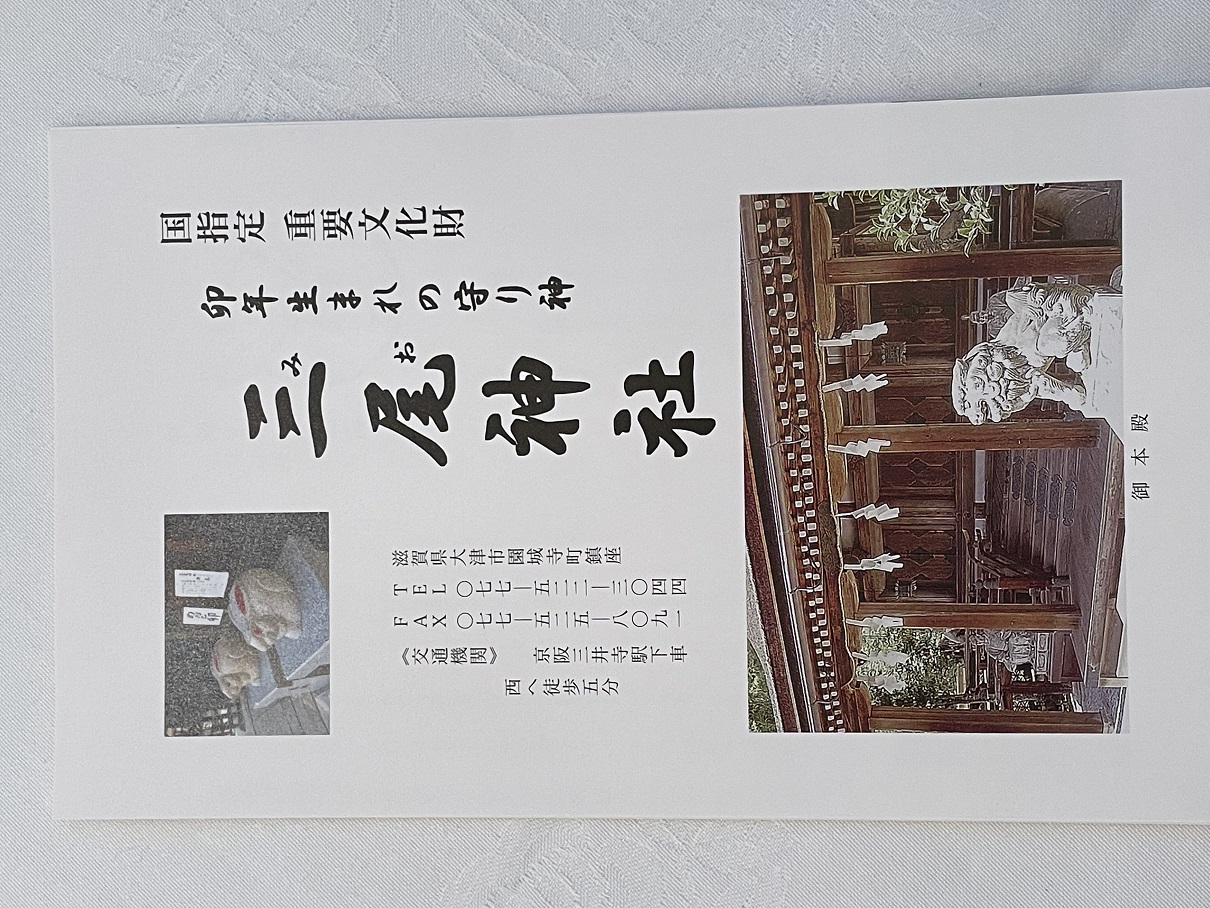 国指定 重要文化財
卯年生まれの守り神
三尾神社
み お
滋賀県大津市園城寺町鎮座
TEL〇七七―五二二―三〇四四
FAX〇七七―五二五―八〇九一
《交通機関》 京阪三井寺駅下車
西へ徒歩五分
御本殿